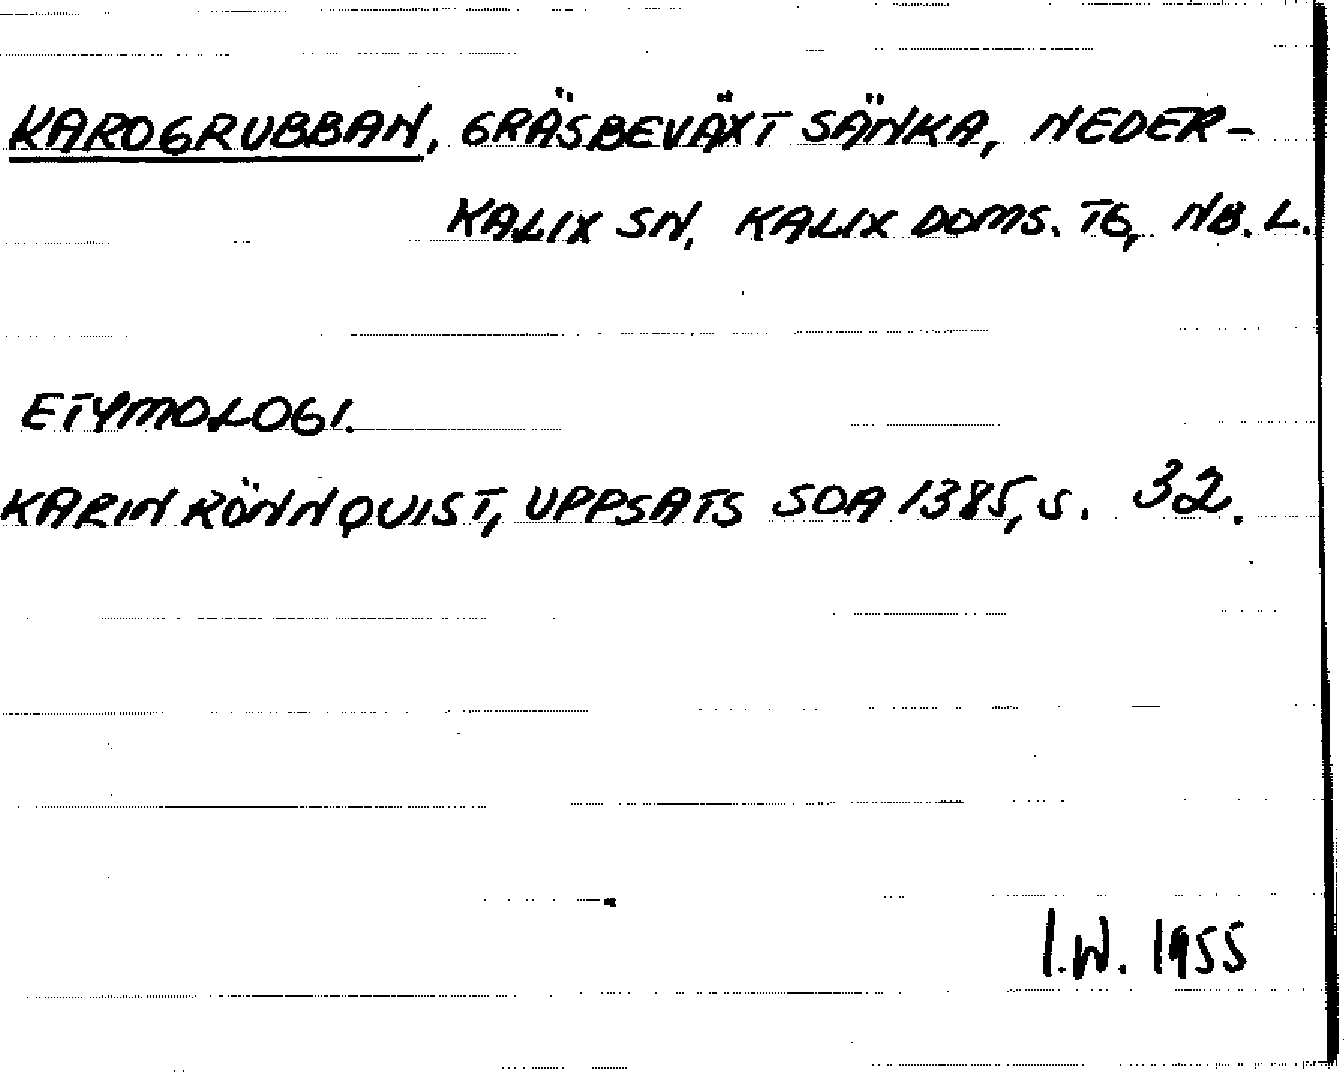 KAROGRUBBAN, GRÄSBEVÄXT SÄNKA, NEDER-
KALIX SN, KALIX DOMS. TG, NB. L.
ETYMOLOGI.
KARIN RÖNNQUIST, UPPSATS SOA 1385, S. 32.
I.W. 1955